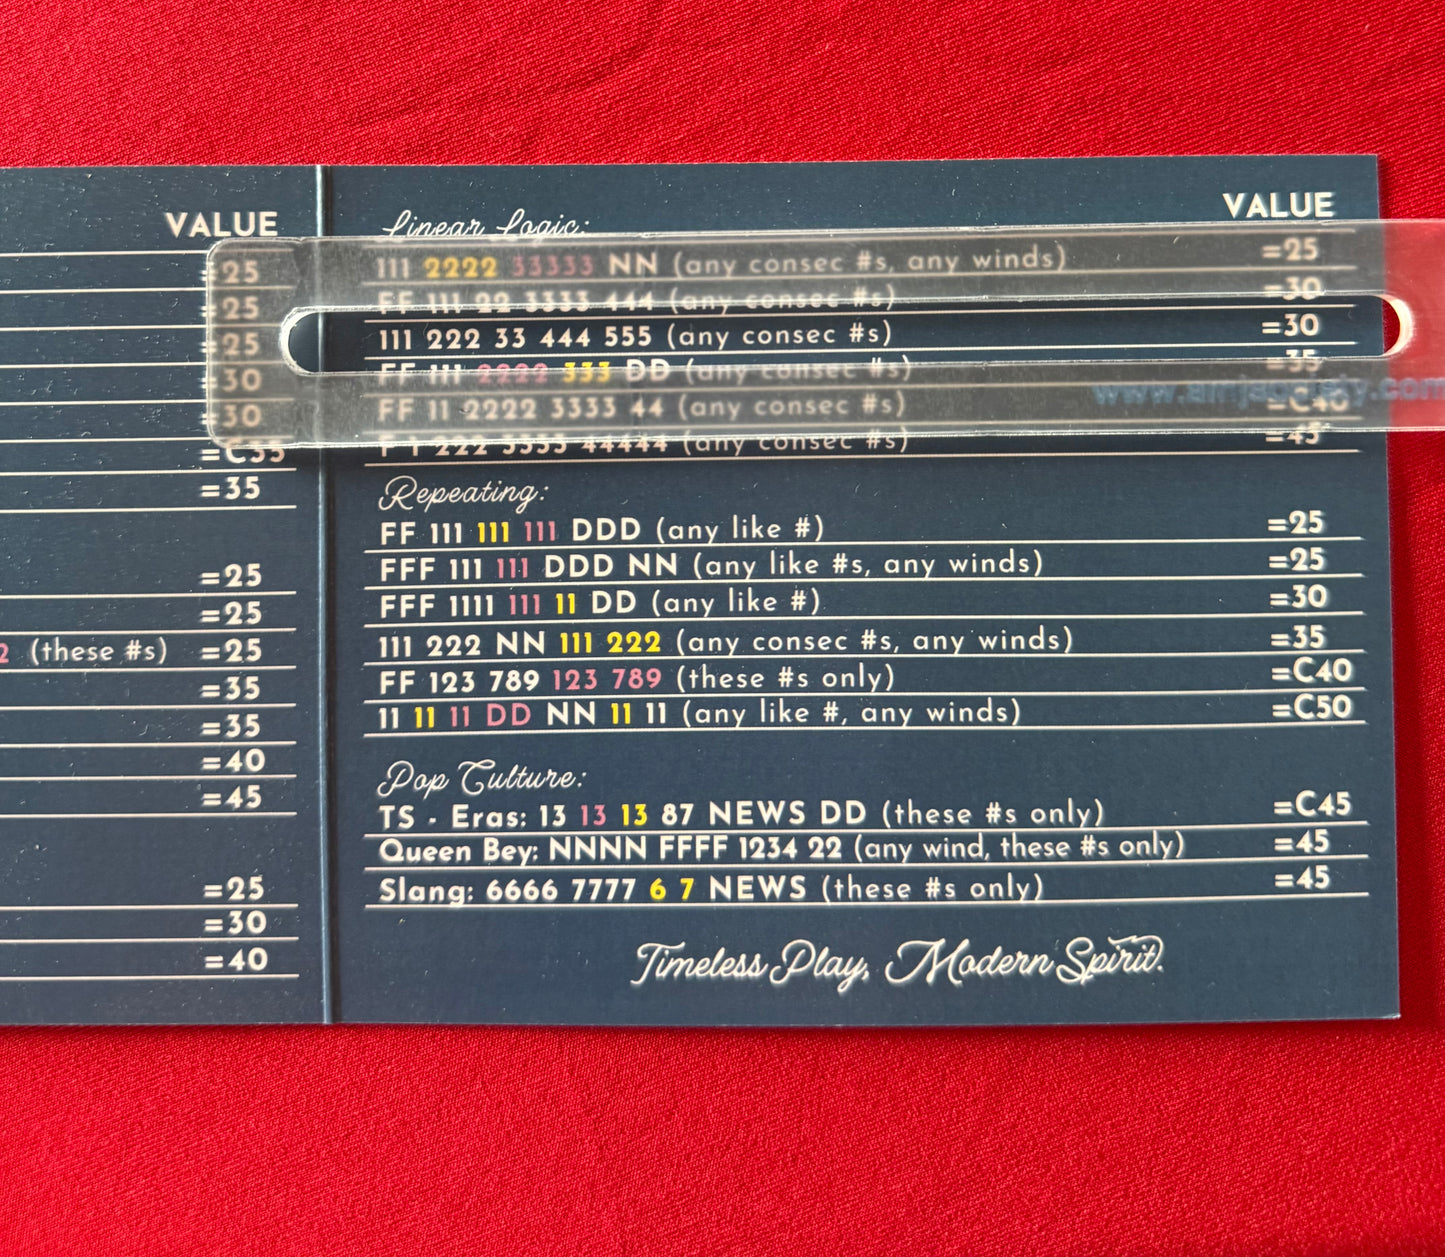 VALUE
=25
=25
=25
=30
=30
=C35
=35
=25
=25
2 (these #s) =25
=35
=35
=40
=45
=25
=30
=40
VALUE
Linear Logic:
111 2222 33333 NN (any consec #s, any winds) =25
FF 111 22 3333 444 (any consec #s) =30
111 222 33 444 555 (any consec #s) =30
FF 111 2222 333 DD (any consec #s) =35
FF 11 2222 3333 44 (any consec #s) =C40
F 1 222 3333 44444 (any consec #s) =45
Repeating:
FF 111 111 111 DDD (any like #) =25
FFF 111 111 DDD NN (any like #s, any winds) =25
FFF 1111 111 11 DD (any like #) =30
111 222 NN 111 222 (any consec #s, any winds) =35
FF 123 789 123 789 (these #s only) =C40
11 11 11 DD NN 11 11 (any like #, any winds) =C50
Pop Culture:
TS - Eras: 13 13 13 87 NEWS DD (these #s only) =C45
Queen Bey: NNNN FFFF 1234 22 (any wind, these #s only) =45
Slang: 6666 7777 6 7 NEWS (these #s only) =45
Timeless Play, Modern Spirit.